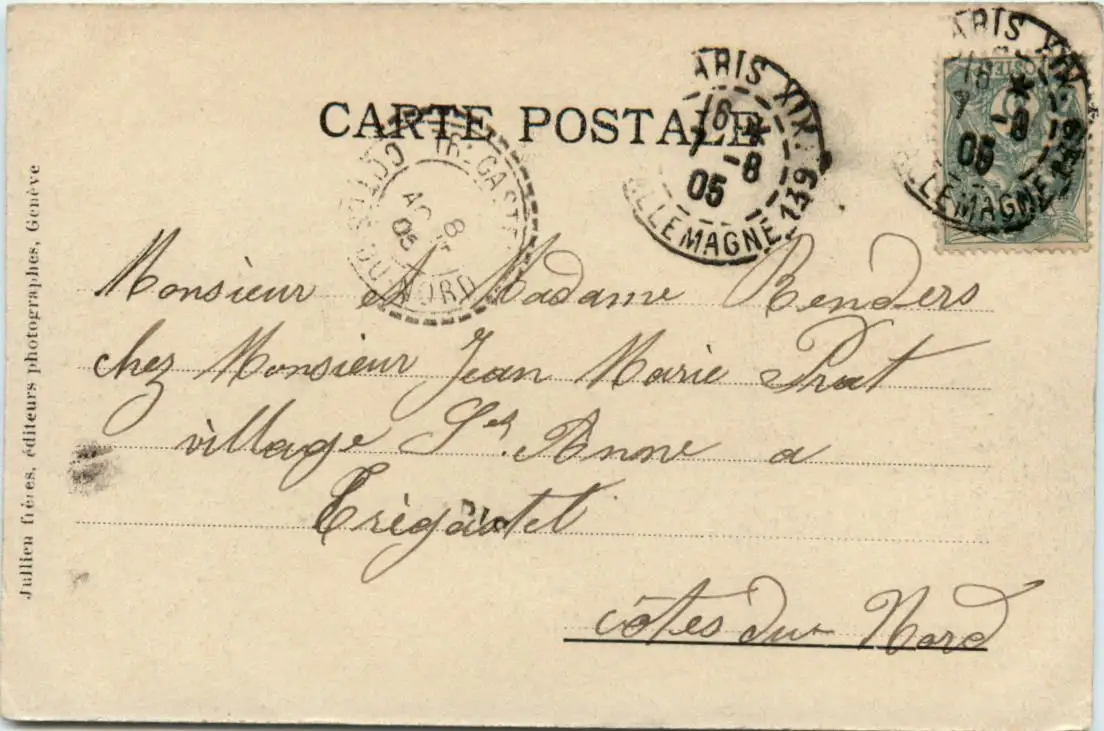 CARTE POSTALE
PARIS XIX
16 *
7 -8
05
ALLEMAGNE 139
ARIS XIX
16 *
7 -8
05
LLEMAGNE 139
POSTES
5
TREGASTEL
8
AO
05
COTES DU NORD
Monsieur et Madame Renders
chez Monsieur Jean Marie Prat
village Ste. Anne a
Trégastel
côtes du Nord
Jullien frères, éditeurs photographes, Genève